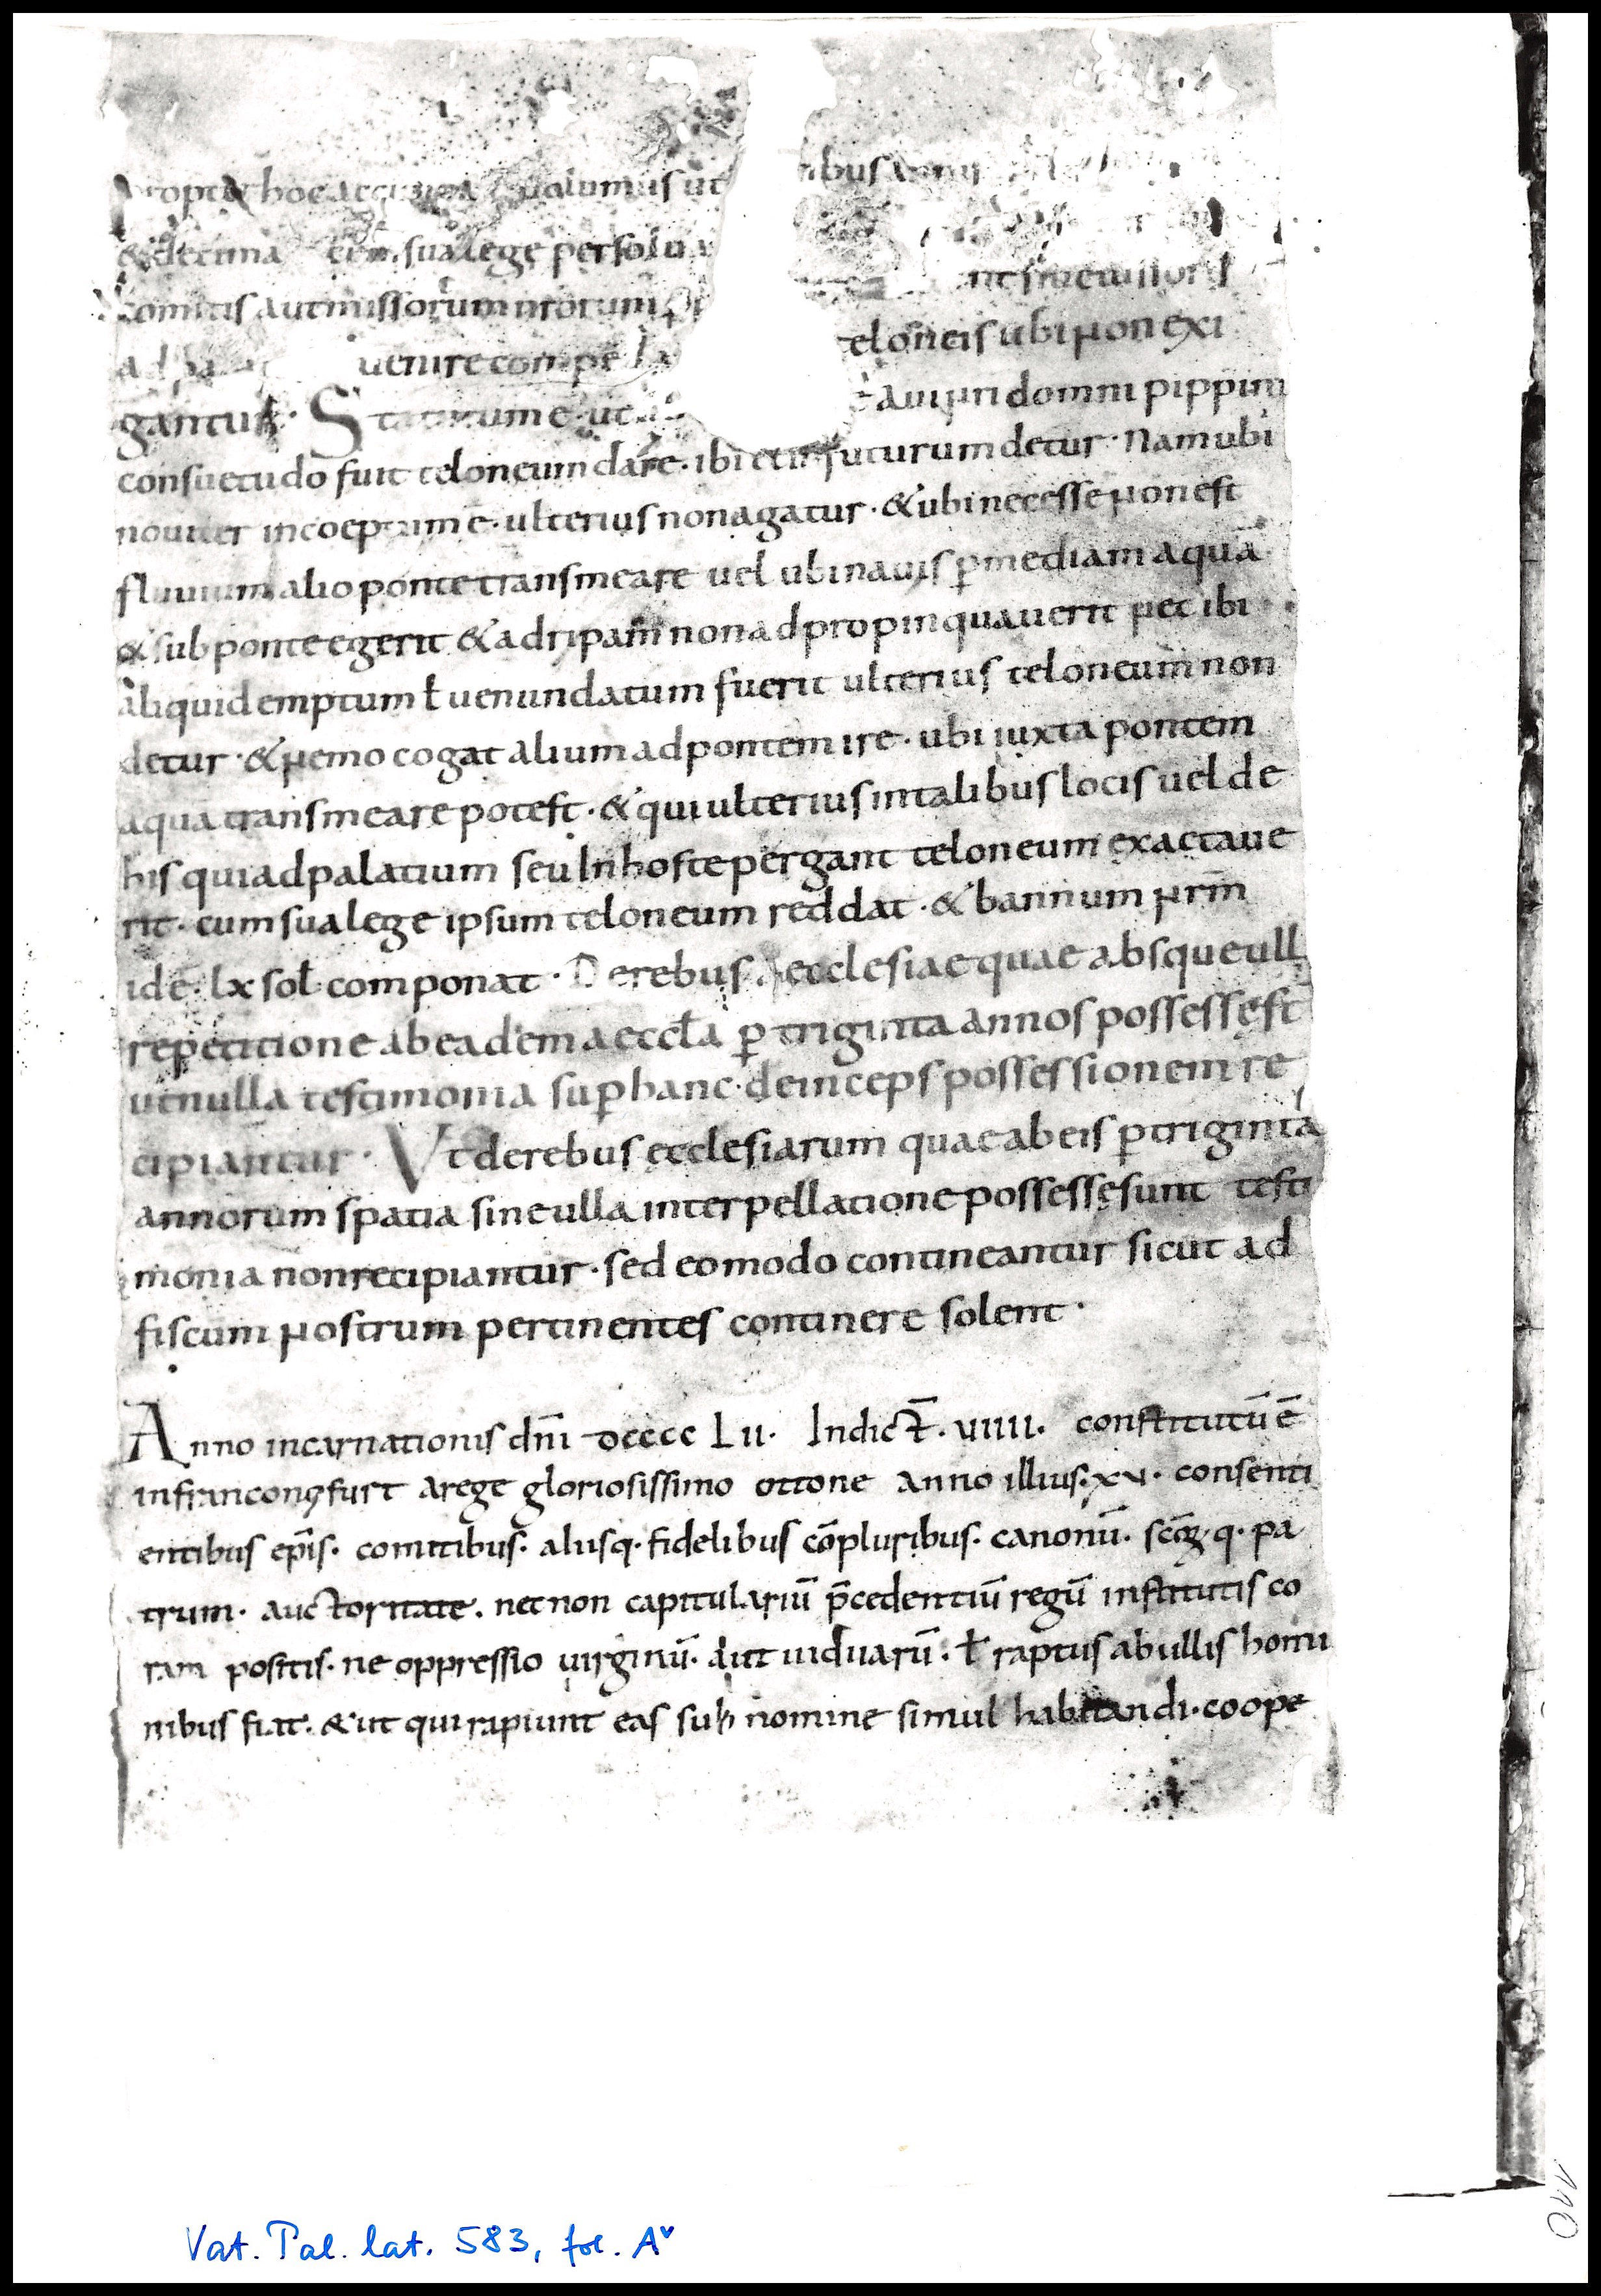 propter hoc accusati ualumus ut ibus annis
& decima cum sua lege persolu
comitis aut missorum nrorum p nt sine missoris
ad pa uenire compella eloneis ubi non exi
gantur · Statutum e · ut aui nri domni pippini
consuetudo fuit teloneum dare · ibi et in futurum detur · Nam ubi
nouiter incoeptum ē · ulterius non agatur · & ubi necesse non est
fluuium alio ponte transmeare uel ubi nauis p̱ mediam aquā
& sub ponte egerit & ad ripam non adpropinquauerit nec ibi
aliquid emptum ł uenundatum fuerit ulterius teloneum non
detur · & nemo cogat alium ad pontem ire · ubi iuxta pontem
aqua transmeare potest · & qui ulterius in talibus locis uel de
his qui ad palatium seu In hoste pergant teloneum exactaue
rit · cum sua lege ipsum teloneum reddat · & bannum nrm̄
id ē · lx sol · componat · De rebus aecclesiae quae absque ull
repetitione ab eadem aeccła p̱ triginta annos possessę st
ut nulla testimonia sup̱ hanc · deinceps possessionem re
cipiantur · Ut de rebus ecclesiarum quae ab eis p̱ triginta
annorum spatia sine ulla interpellatione possessę sunt testi
monia non recipiantur · sed eo modo contineantur sicut ad
fiscum nostrum pertinentes continere solent ·
Anno incarnationis dn̄i dcccc Lii · Indict̄ · uiiii · constitutū ē
in franconofurt a rege gloriosissimo ottone anno illius · xu · consenti
entibus ep̄is · comitibus · aliisq · fidelibus cōpluribus · canonū · scō̄ꝝ · q · pa
trum · auctoritate · nec non capitulariū p̄cedentiū regū institutis co
ram positis · ne oppressio uirginū · aut uiduarū · ł raptus ab ullis homi
nibus fiat · & ut qui rapiunt eas sub nomine simul habitandi · coope
Vat. Pal. lat. 583, fol. Aᵛ
110